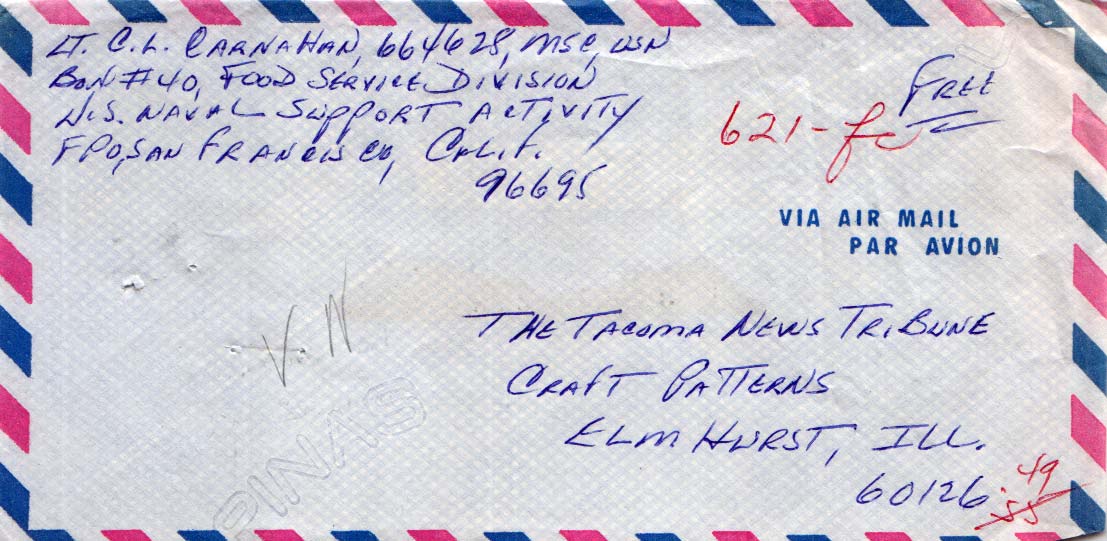 LT. C.L. CARNAHAN, 664628, MSC, USN
Box #40, FOOD SERVICE DIVISION
U.S. NAVAL SUPPORT ACTIVITY
FPO, SAN FRANCISCO, CALIF.
96695
FREE
621-fc
VIA AIR MAIL
PAR AVION
V. N
THE TACOMA NEWS TRIBUNE
CRAFT PATTERNS
ELMHURST, ILL.
60126
.49
.55
PINAS